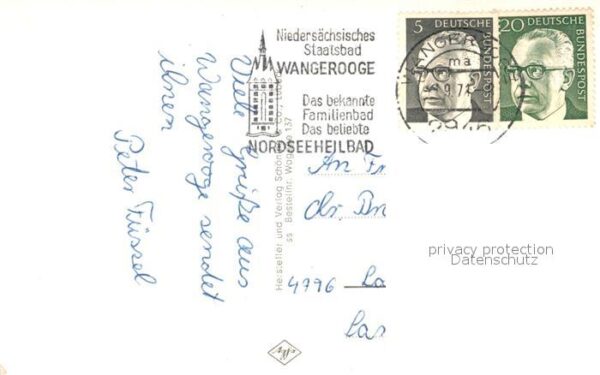 Viele Grüße aus
Wangerooge sendet
ihnen
Peter Füssel
Niedersächsisches
Staatsbad
WANGEROOGE
Das bekannte
Familienbad
Das beliebte
NORDSEEHEILBAD
5 DEUTSCHE
BUNDESPOST
20 DEUTSCHE
BUNDESPOST
WANGEROOGE
ma
Hersteller und Verlag Schöning
ss Bestellnr. Wange 137
An F
Dr. Br
4796
privacy protection
Datenschutz
Agfa